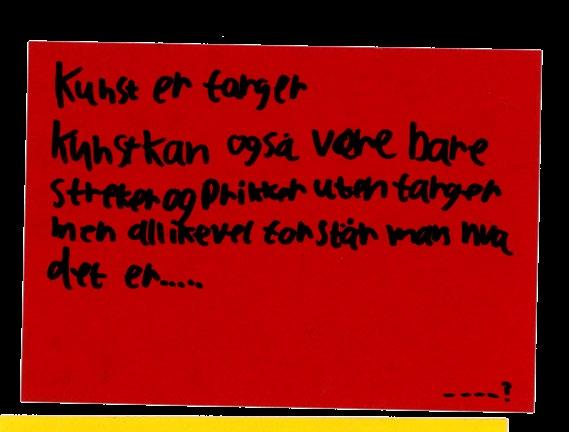 Kunst er farger
kunst kan også være bare
streker og prikker uten farger
men allikevel forstår man hva
det er.....
----?